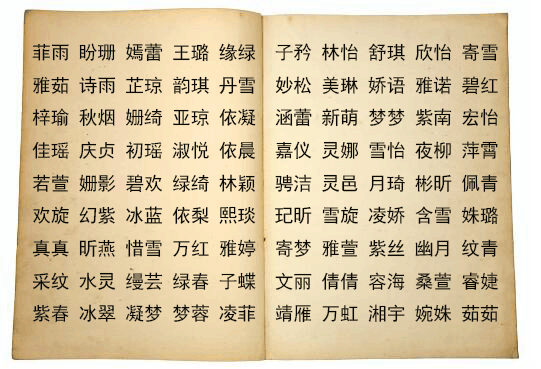 菲雨 盼珊 嫣蕾 王璐 缘绿
雅茹 诗雨 芷琼 韵琪 丹雪
梓瑜 秋烟 姗绮 亚琼 依凝
佳瑶 庆贞 初瑶 淑悦 依晨
若萱 姗影 碧欢 绿绮 林颖
欢旋 幻紫 冰蓝 依梨 熙琰
真真 昕燕 惜雪 万红 雅婷
采纹 水灵 缦芸 绿春 子蝶
紫春 冰翠 凝梦 梦蓉 凌菲
子矜 林怡 舒琪 欣怡 寄雪
妙松 美琳 娇语 雅诺 碧红
涵蕾 新萌 梦梦 紫南 宏怡
嘉仪 灵娜 雪怡 夜柳 萍霄
骋洁 灵邑 月琦 彬昕 佩青
玘昕 雪旋 凌娇 含雪 姝璐
寄梦 雅萱 紫丝 幽月 纹青
文丽 倩倩 容海 桑萱 睿婕
靖雁 万虹 湘宇 婉姝 茹茹